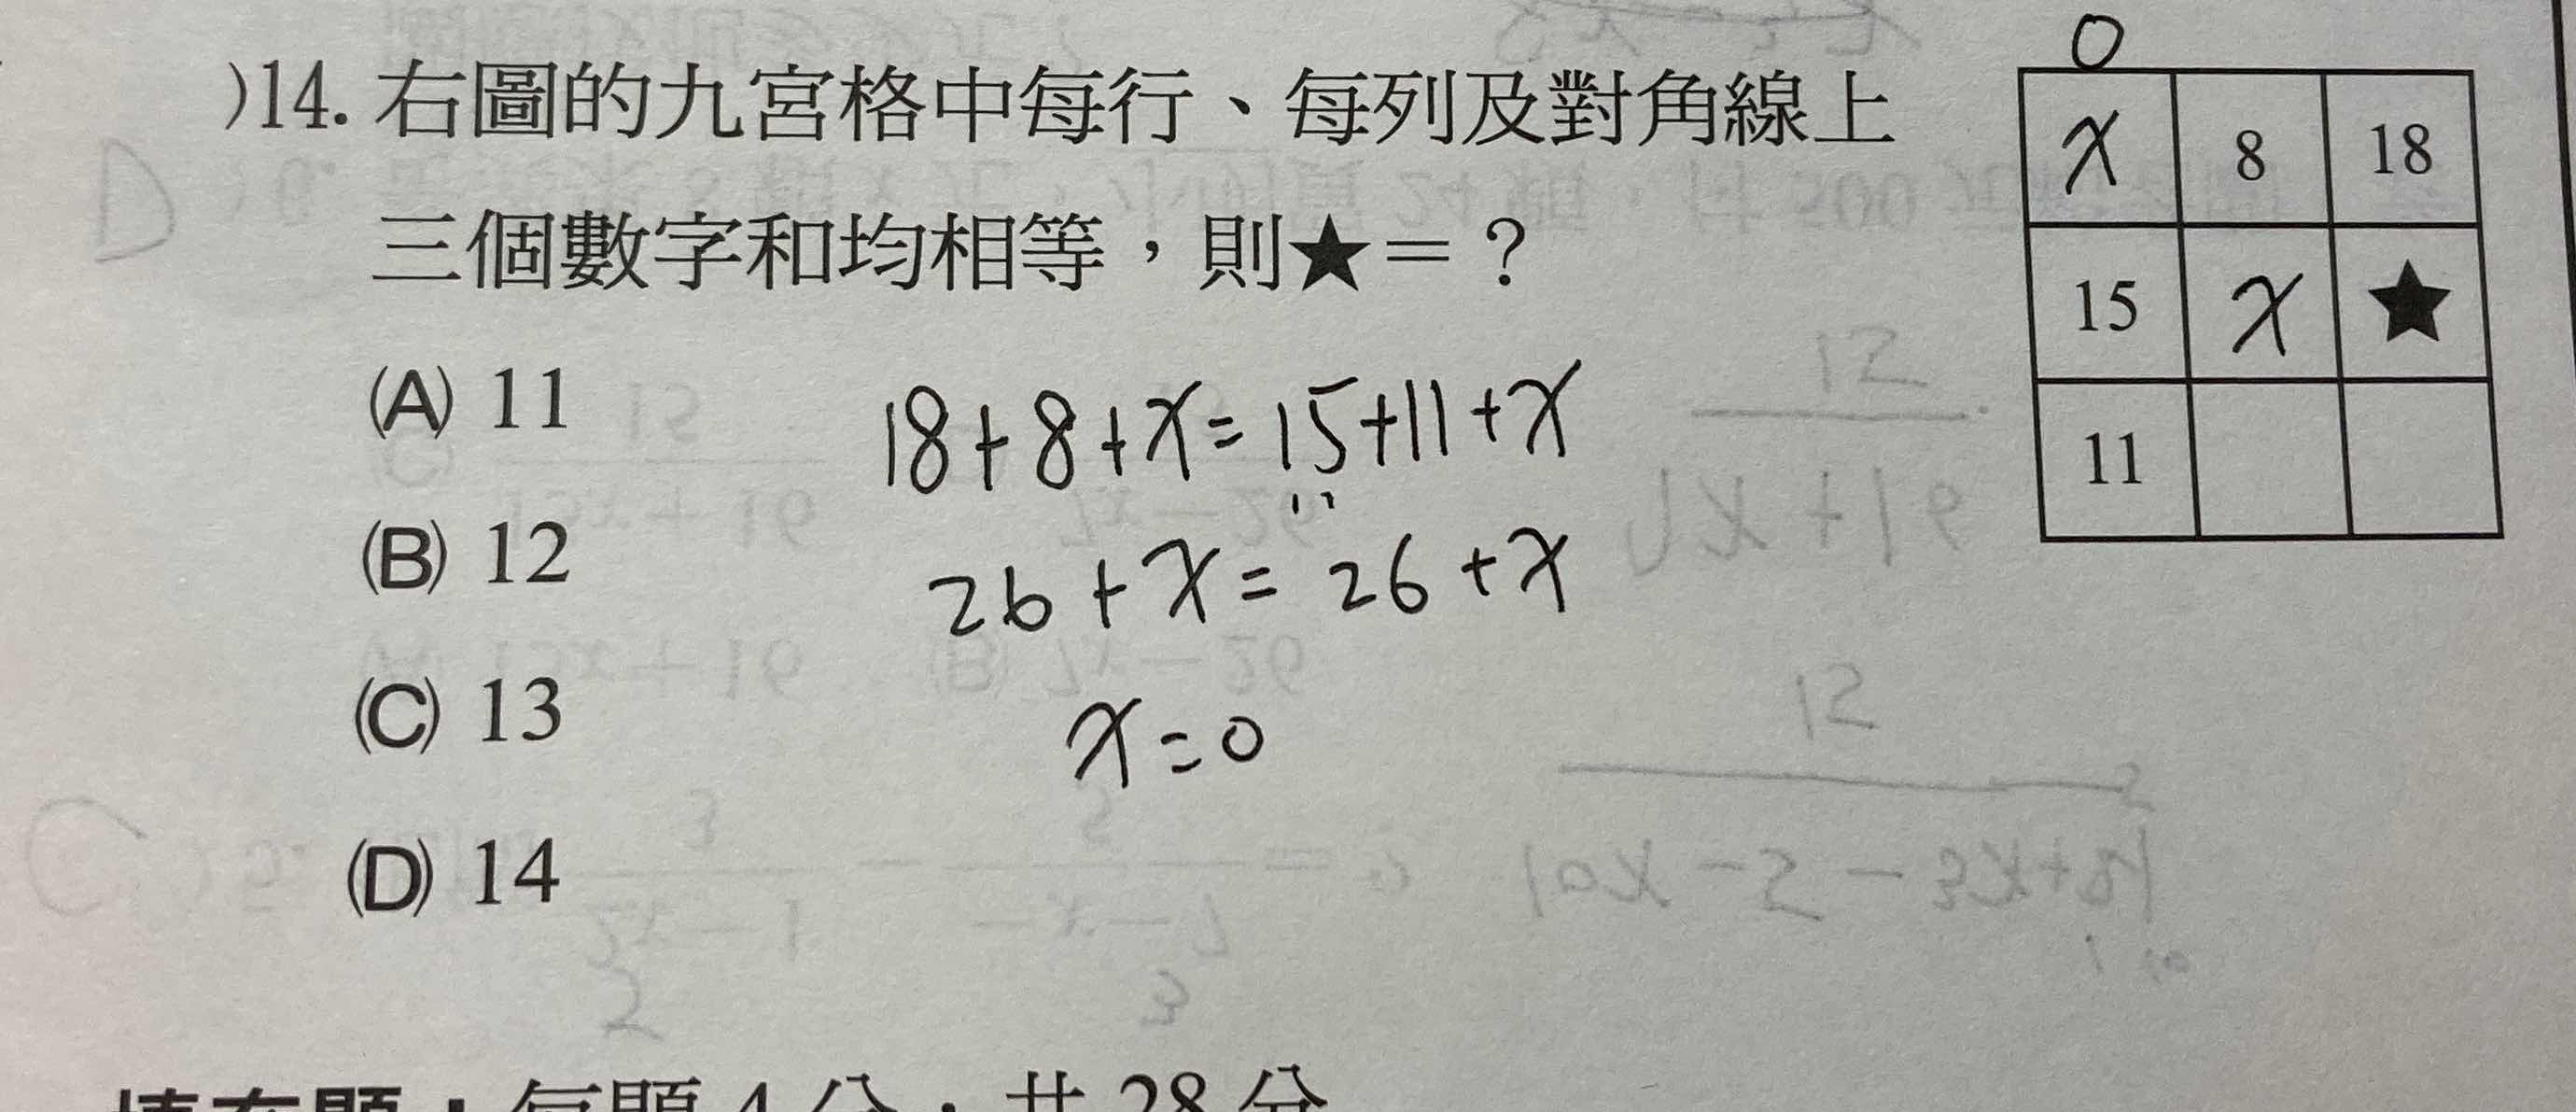 )14. 右圖的九宮格中每行、每列及對角線上
三個數字和均相等，則★＝？
(A) 11
(B) 12
(C) 13
(D) 14
18+8+x=15+11+x
26+x=26+x
x=0
0
x 8 18
15 x ★
11
填充題：每題 4 分，共 28 分